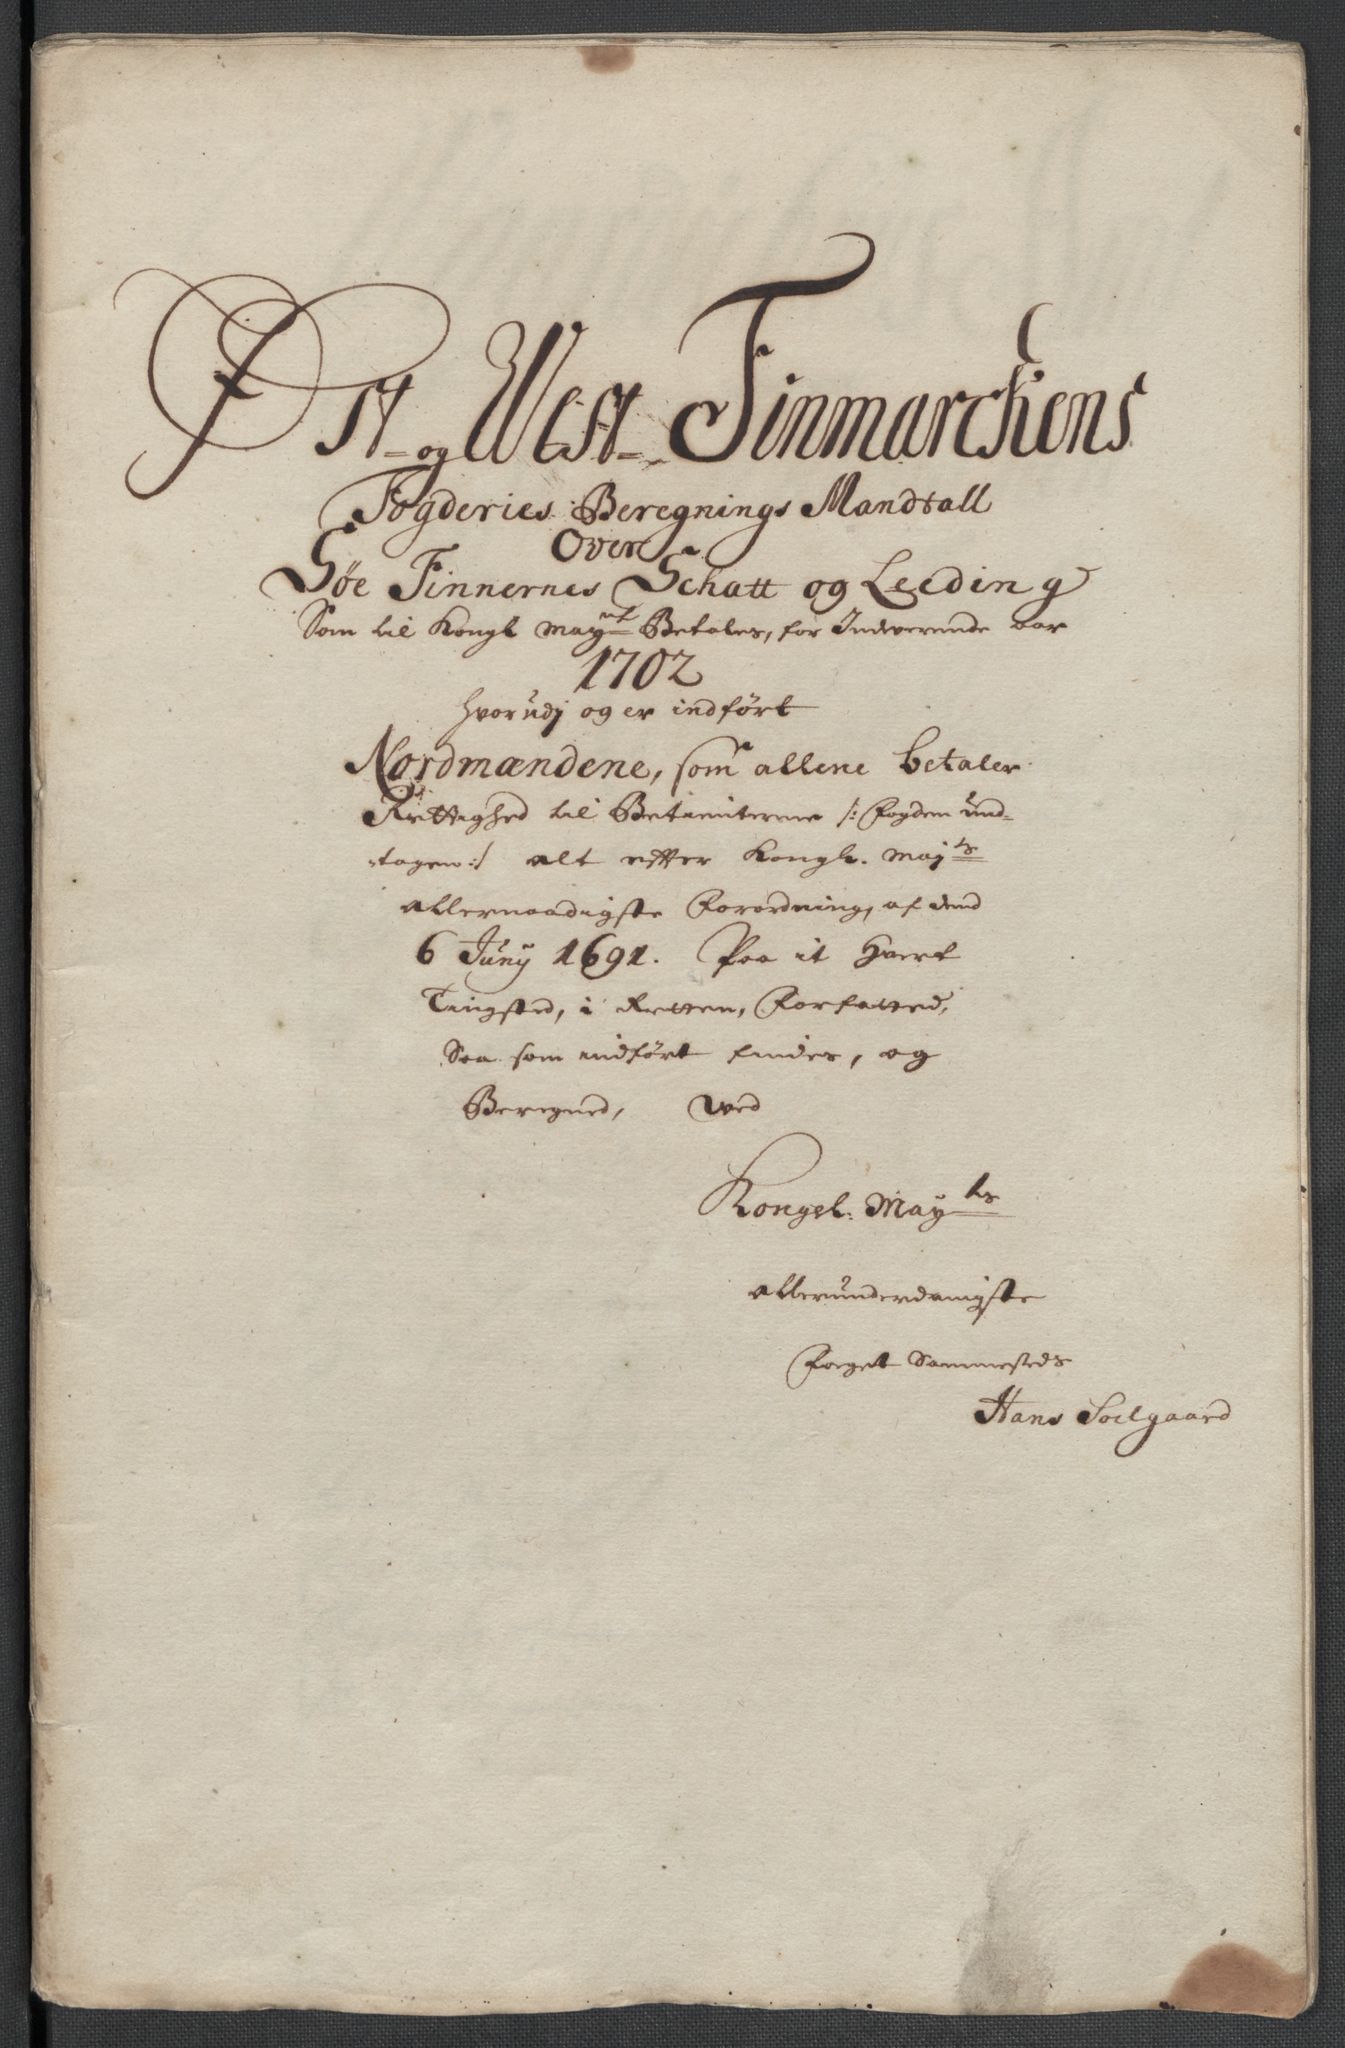 Øst- og West- Finmarckens
Fogderies Beregnings Mandtall
Over
Søe Finnernes Schatt og Leeding
Som til Kongl Mayᵗᵗ Betales, for Indwerende aar
1702
Hvorudj og er indført
Nordmændene, som allene betaler
Rettighed til Betienterne /: Fogden und-
-tagen :/ alt effter Kongl. Mayᵗˢ
allernaadigste Forordning, af dend
6 Juny 1691. Paa it Hvert
Tingsted, i Retten, Forfatted,
Saa som indført findes, og
Beregned, Ved
Kongel: Mayᵗˢ
allerunderdanigste
Foget Sammesteds
Hans Soelgaard